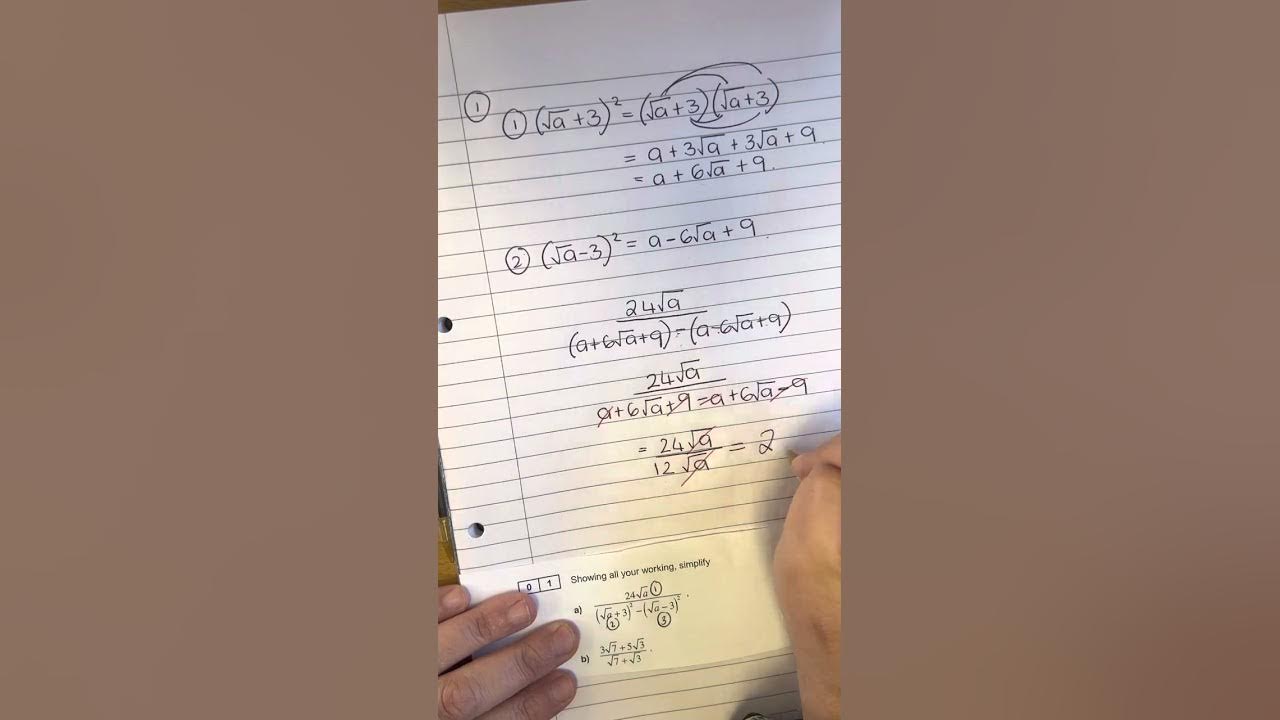 ① ① (√a + 3)² = (√a + 3)(√a + 3)
= a + 3√a + 3√a + 9
= a + 6√a + 9.
② (√a - 3)² = a - 6√a + 9.
24√a
(a+6√a+9) - (a-6√a+9)
24√a
a+6√a+9-a+6√a-9
= 24√a = 2
12√a
0 1 Showing all your working, simplify
a) 24√a ① .
(√a+3)² - (√a-3)²
② ③
b) 3√7 + 5√3 .
√7 + √3